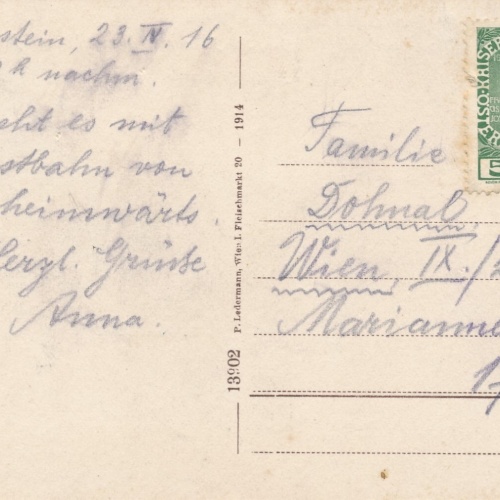 stein, 23. IV. 16
h nachm.
eht es mit
stbahn von
heimwärts.
Herzl. Grüße
Anna.
13902
P. Ledermann, Wien I. Fleischmarkt 20 — 1914
Familie
Dohnal
Wien, IX./
Marianne
17
KAISER
5